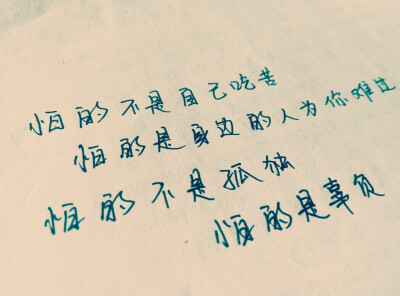 怕的不是自己吃苦
怕的是身边的人为你难过
怕的不是孤独
怕的是辜负